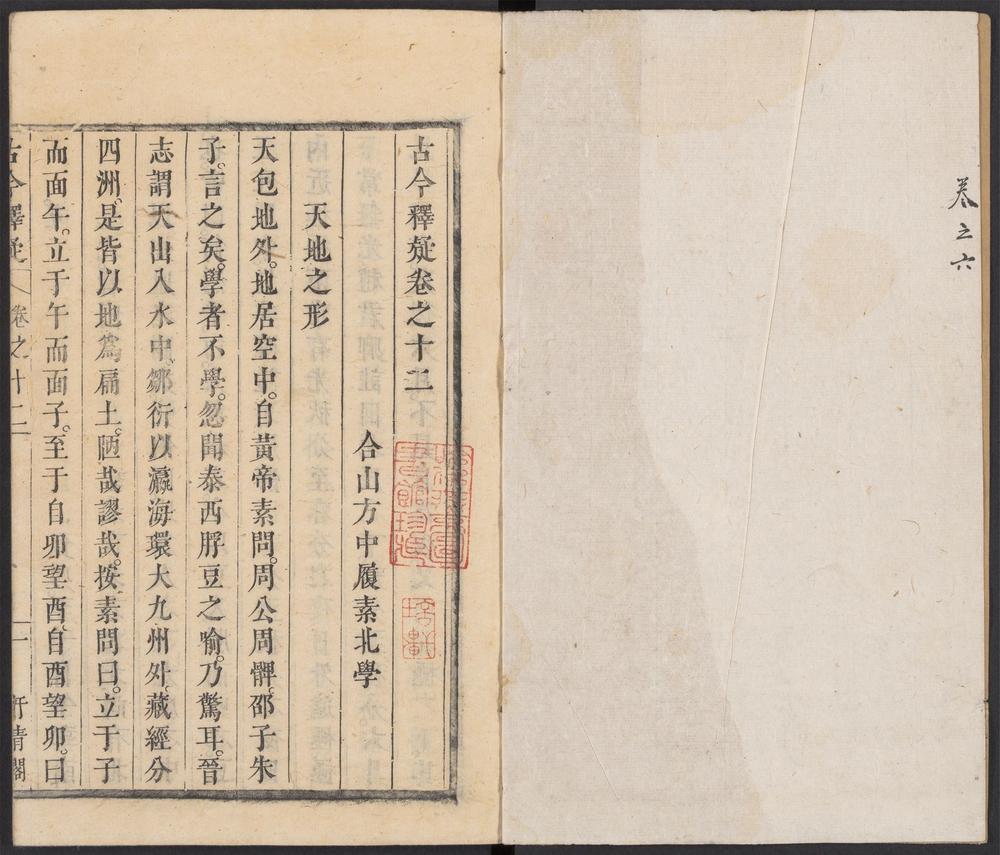 卷之六
古今釋疑卷之十二
合山方中履素北學
天地之形
天包地外。地居空中。自黃帝素問。周公周髀。邵子朱
子。言之矣。學者不學。忽聞泰西脬豆之喻。乃驚耳。晉
志謂天出入水中。鄒衍以瀛海環大九州外。藏經分
四洲。是皆以地爲扁土。陋哉謬哉。按素問曰。立于子
而面午。立于午而面子。至于自卯望酉。自酉望卯。曰
古今釋疑 卷之十二 一 汗靑閣